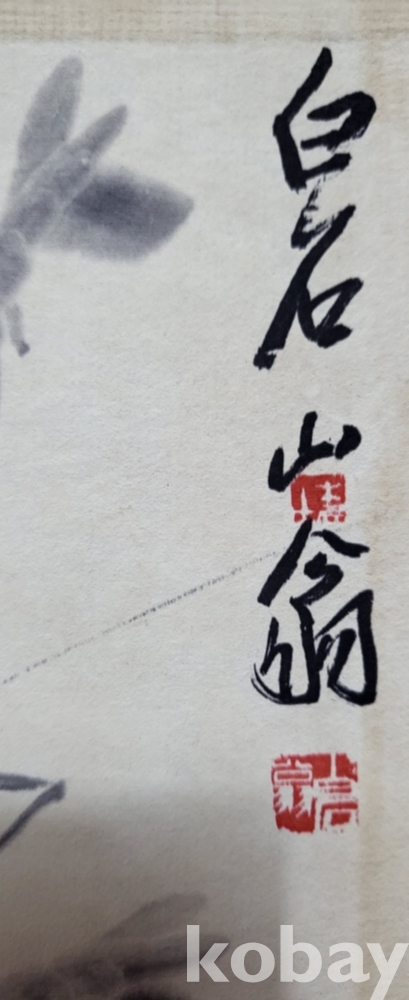 白石山翁
kobay